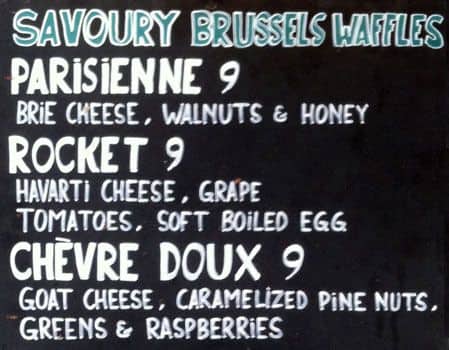 SAVOURY BRUSSELS WAFFLES
PARISIENNE 9
BRIE CHEESE, WALNUTS & HONEY
ROCKET 9
HAVARTI CHEESE, GRAPE
TOMATOES, SOFT BOILED EGG
CHÈVRE DOUX 9
GOAT CHEESE, CARAMELIZED PINE NUTS,
GREENS & RASPBERRIES